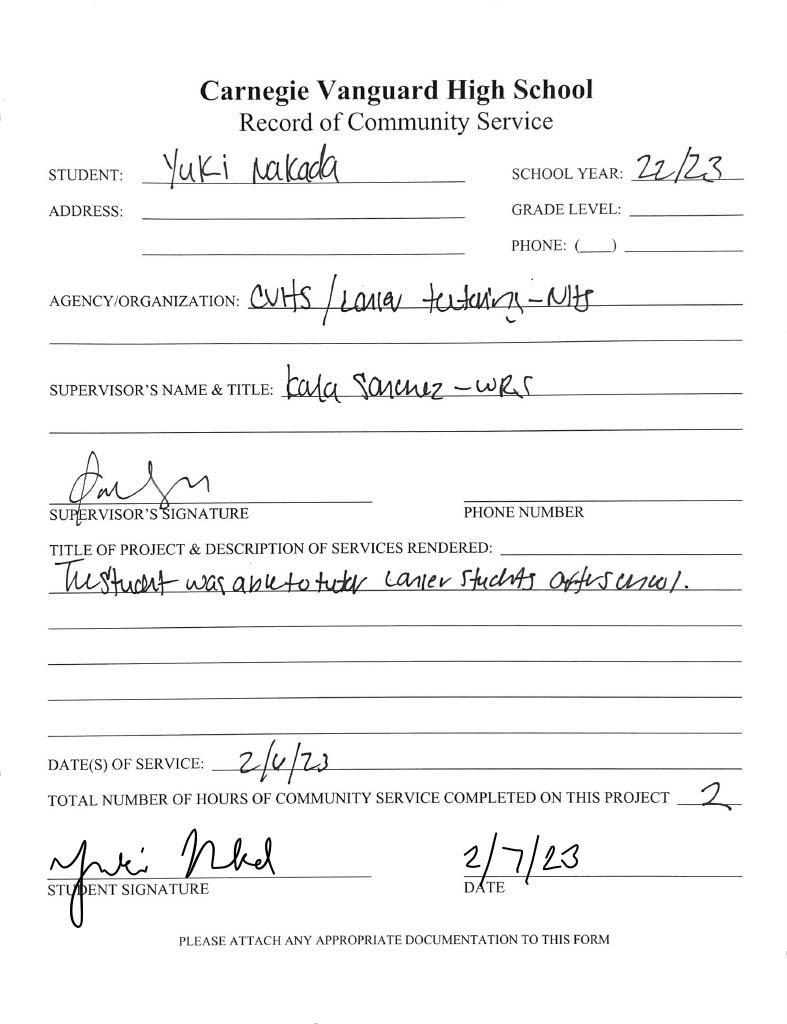 Carnegie Vanguard High School
Record of Community Service
STUDENT: Yuki Nakada SCHOOL YEAR: 22/23
ADDRESS: GRADE LEVEL:
PHONE: (___)
AGENCY/ORGANIZATION: CVHS / Lanier tutoring - NHS
SUPERVISOR'S NAME & TITLE: Sanchez -
SUPERVISOR'S SIGNATURE PHONE NUMBER
TITLE OF PROJECT & DESCRIPTION OF SERVICES RENDERED:
The student was able to tutor Lanier students after school.
DATE(S) OF SERVICE: 2/ /23
TOTAL NUMBER OF HOURS OF COMMUNITY SERVICE COMPLETED ON THIS PROJECT 2
Yuki
2/7/23
STUDENT SIGNATURE DATE
PLEASE ATTACH ANY APPROPRIATE DOCUMENTATION TO THIS FORM